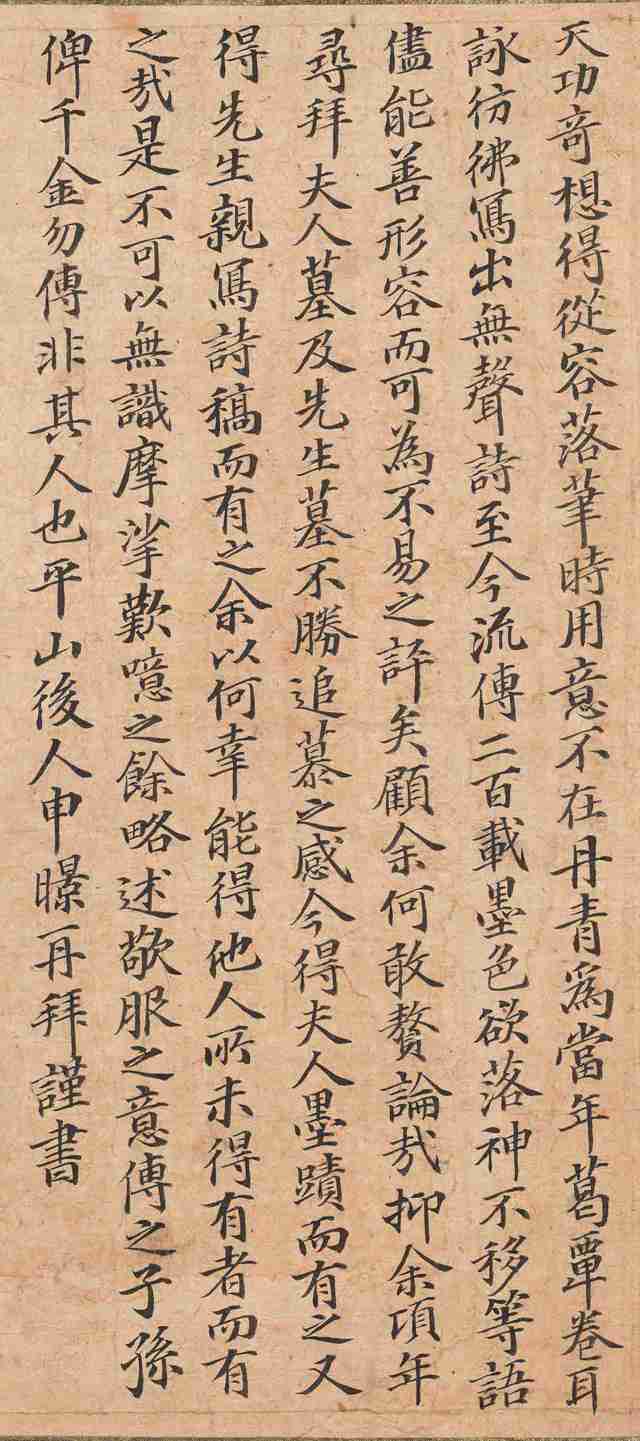 天功奇想得從容落筆時用意不在丹青爲當年葛覃卷耳
詠彷彿寫出無聲詩至今流傳二百載墨色欲落神不移等語
儘能善形容而可為不易之評矣顧余何敢贅論㢤抑余項年
尋拜夫人墓及先生墓不勝追慕之感今得夫人墨蹟而有之又
得先生親寫詩稿而有之余以何幸能得他人所未得有者而有
之㢤是不可以無識摩挲歎噫之餘略述欽服之意傳之子孫
俾千金勿傳非其人也平山後人申暻再拜謹書